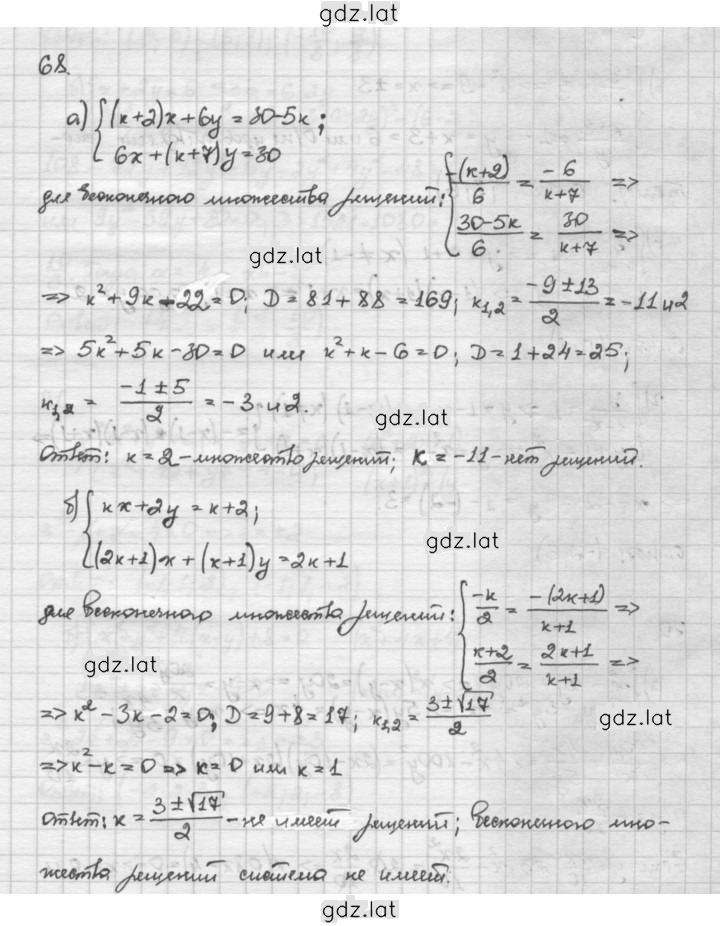 gdz.lat
68.
а) { (к+2)x + 6y = 30-5к ;
6x + (к+7)y = 30
для бесконечного множества решений: { -(к+2)/6 = -6/(к+7) =>
(30-5к)/6 = 30/(к+7) =>
gdz.lat
=> к² + 9к - 22 = 0; D = 81 + 88 = 169; к1,2 = (-9 ± 13)/2 = -11 и 2
=> 5к² + 5к - 30 = 0 или к² + к - 6 = 0; D = 1 + 24 = 25;
к1,2 = (-1 ± 5)/2 = -3 и 2.
gdz.lat
Ответ: к = 2 - множество решений; к = -11 - нет решений.
б) { кx + 2y = к + 2;
(2к+1)x + (к+1)y = 2к+1
gdz.lat
для бесконечного множества решений: { -к/2 = -(2к+1)/(к+1) =>
(к+2)/2 = (2к+1)/(к+1) =>
gdz.lat
=> к² - 3к - 2 = 0; D = 9 + 8 = 17; к1,2 = (3 ± √17)/2
gdz.lat
=> к² - к = 0 => к = 0 или к = 1
Ответ: к = (3 ± √17)/2 - не имеет решений; бесконечного мно-
жества решений система не имеет.
gdz.lat